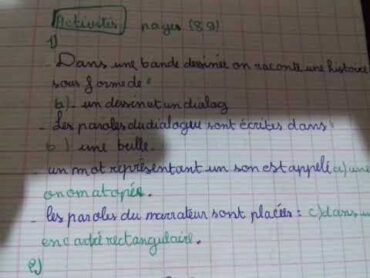 Activités pages (89)
1)
- Dans une bande dessinée on raconte une histoire
sous forme de :
b) - un dessin et un dialog
- Les paroles du dialogue sont écrites dans
b) une bulle.
- un mot représentant un son est appelé a) une
onomatopée.
- les paroles du narrateur sont placées : c) dans u
encadré rectangulaire.
2)